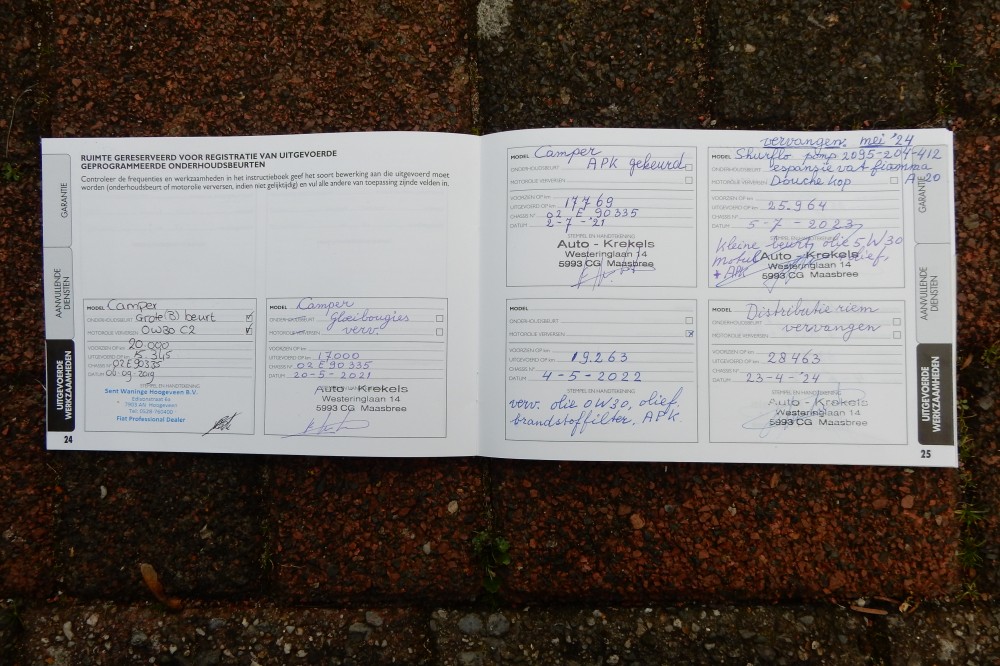 RUIMTE GERESERVEERD VOOR REGISTRATIE VAN UITGEVOERDE
GEPROGRAMMEERDE ONDERHOUDSBEURTEN
Controleer de frequenties en werkzaamheden in het instructieboek geef het soort bewerking aan die uitgevoerd moet
worden (onderhoudsbeurt of motorolie verversen, indien niet gelijktijdig) en vul alle andere van toepassing zijnde velden in.
GARANTIE
AANVULLENDE
DIENSTEN
UITGEVOERDE
WERKZAAMHEDEN
24
MODEL Camper
ONDERHOUDSBEURT Grote (B) beurt
MOTOROLIE VERVERSEN 0W30 C2
VOORZIEN OP km 20.000
UITGEVOERD OP km 5.345
CHASSIS N° 02E90335
DATUM 09-2019
STEMPEL EN HANDTEKENING
Sent Waninge Hoogeveen B.V.
Edisonstraat 6a
Hoogeveen
Tel: 0528
Fiat Professional Dealer
MODEL Camper
ONDERHOUDSBEURT Gloeibougies
MOTOROLIE VERVERSEN verv.
VOORZIEN OP km
UITGEVOERD OP km 17000
CHASSIS N° 02E 90335
DATUM 20-5-2021
STEMPEL EN HANDTEKENING
Auto - Krekels
Westeringlaan 14
5993 CG Maasbree
MODEL Camper
APK gekeurd
MOTOROLIE VERVERSEN
VOORZIEN OP km
UITGEVOERD OP km 17769
CHASSIS N° 02 E 90335
DATUM 2-7-'21
STEMPEL EN HANDTEKENING
Auto - Krekels
Westeringlaan 14
5993 CG Maasbree
ONDERHOUDSBEURT
MOTOROLIE VERVERSEN
VOORZIEN OP km
UITGEVOERD OP km 19.263
CHASSIS N°
DATUM 4-5-2022
STEMPEL EN HANDTEKENING
verv. olie 0W30, olief,
brandstoffilter, APK.
vervangen. mei '24
MODEL Shurflo pomp 2095-204-412
expanzie vat fiamma
MOTOROLIE VERVERSEN Douche kop A 20
VOORZIEN OP km
UITGEVOERD OP km 25.964
CHASSIS N°
DATUM 5-7-2023
STEMPEL EN HANDTEKENING
Kleine beurt, olie 5W30
olief,
+ APK
Auto - Krekels
Westeringlaan 14
5993 CG Maasbree
MODEL Distributie riem
ONDERHOUDSBEURT
MOTOROLIE VERVERSEN vervangen
VOORZIEN OP km
UITGEVOERD OP km 28463
CHASSIS N°
DATUM 23-4-'24
STEMPEL EN HANDTEKENING
Auto - Krekels
Westeringlaan 14
5993 CG Maasbree
GARANTIE
AANVULLENDE
DIENSTEN
UITGEVOERDE
WERKZAAMHEDEN
25